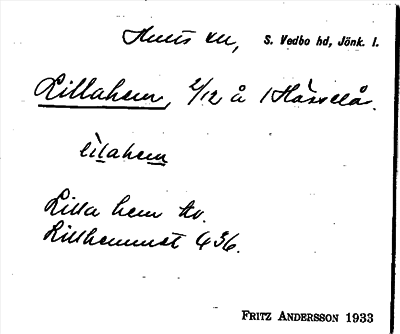 Hults sn, S. Vedbo hd, Jönk. l.
Lillahem, 2/12 å 1 Hässelås.
lìlahem
Lilla hem kv.
Lillhemmet 436.
FRITZ ANDERSSON 1933